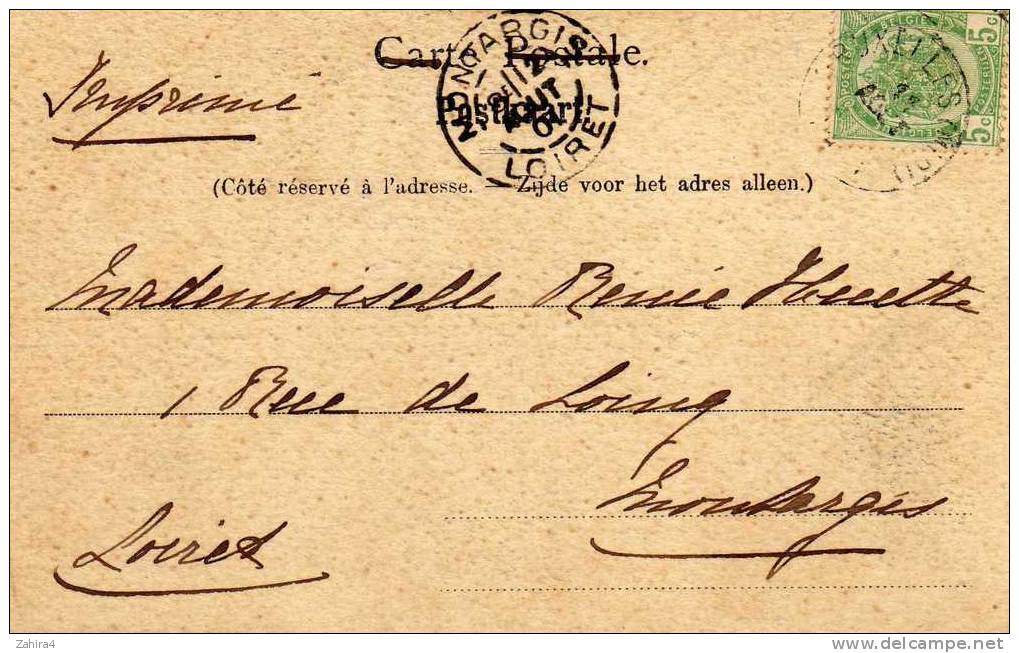 Carte Postale.
Imprimé
Postkaart
MONTARGIS
AOUT
LOIRET
BELGIE
POSTES
5c
5c
BRUXELLES
(Côté réservé à l'adresse. — Zijde voor het adres alleen.)
Mademoiselle Renée Huette
1 Rue de Loing
Montargis
Loiret
Zahira4
delcampe.net